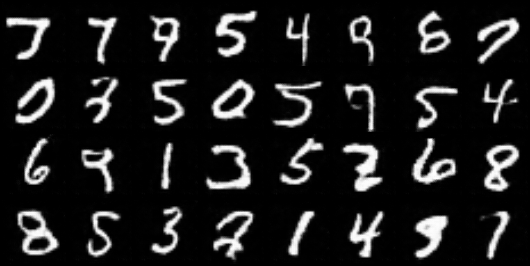 7 7 9 5 4 9 8 7
0 2 5 0 5 7 5 4
6 9 1 3 5 2 6 8
8 5 3 2 1 4 9 7